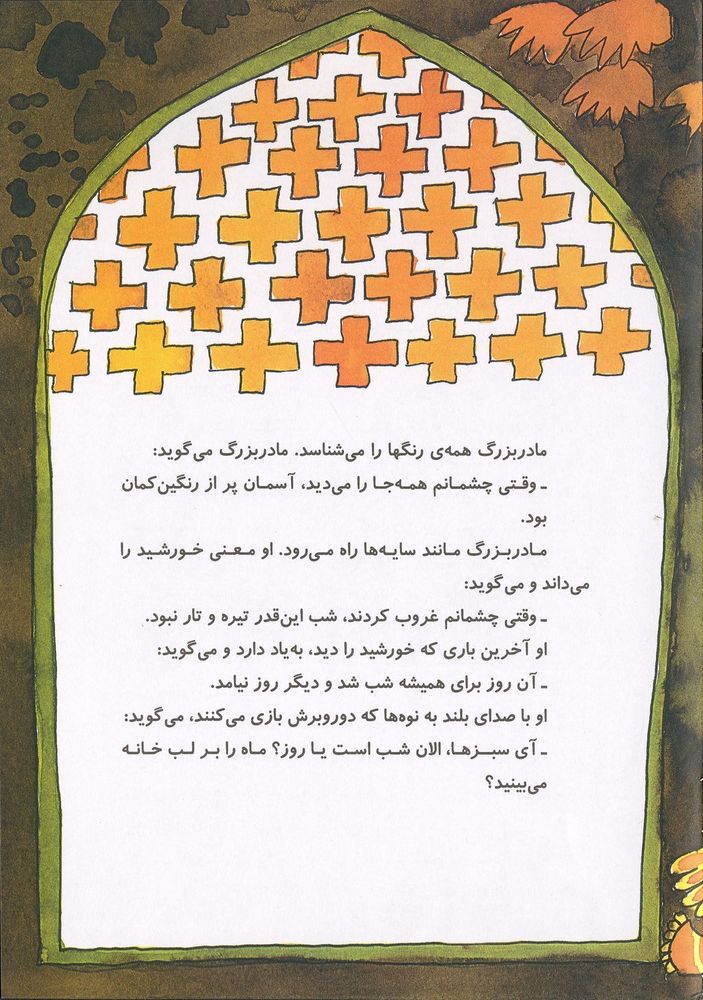 مادربزرگ همه‌ی رنگها را می‌شناسد. مادربزرگ می‌گوید:
ـ وقتی چشمانم همه‌جا را می‌دید، آسمان پر از رنگین‌کمان
بود.
مادربزرگ مانند سایه‌ها راه می‌رود. او معنی خورشید را
می‌داند و می‌گوید:
ـ وقتی چشمانم غروب کردند، شب این‌قدر تیره و تار نبود.
او آخرین باری که خورشید را دید، به‌یاد دارد و می‌گوید:
ـ آن روز برای همیشه شب شد و دیگر روز نیامد.
او با صدای بلند به نوه‌ها که دوروبرش بازی می‌کنند، می‌گوید:
ـ آی سبزها، الان شب است یا روز؟ ماه را بر لب خانه
می‌بینید؟